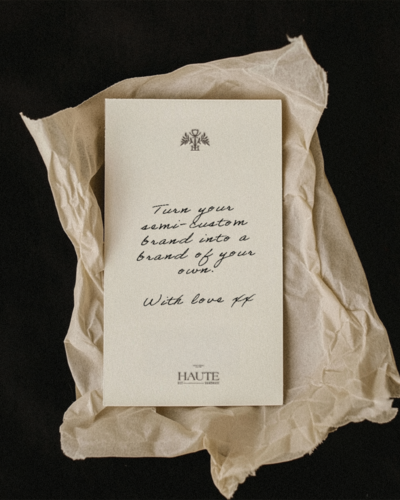 Turn your
semi-custom
brand into a
brand of your
own.
With love xx
HAUTE